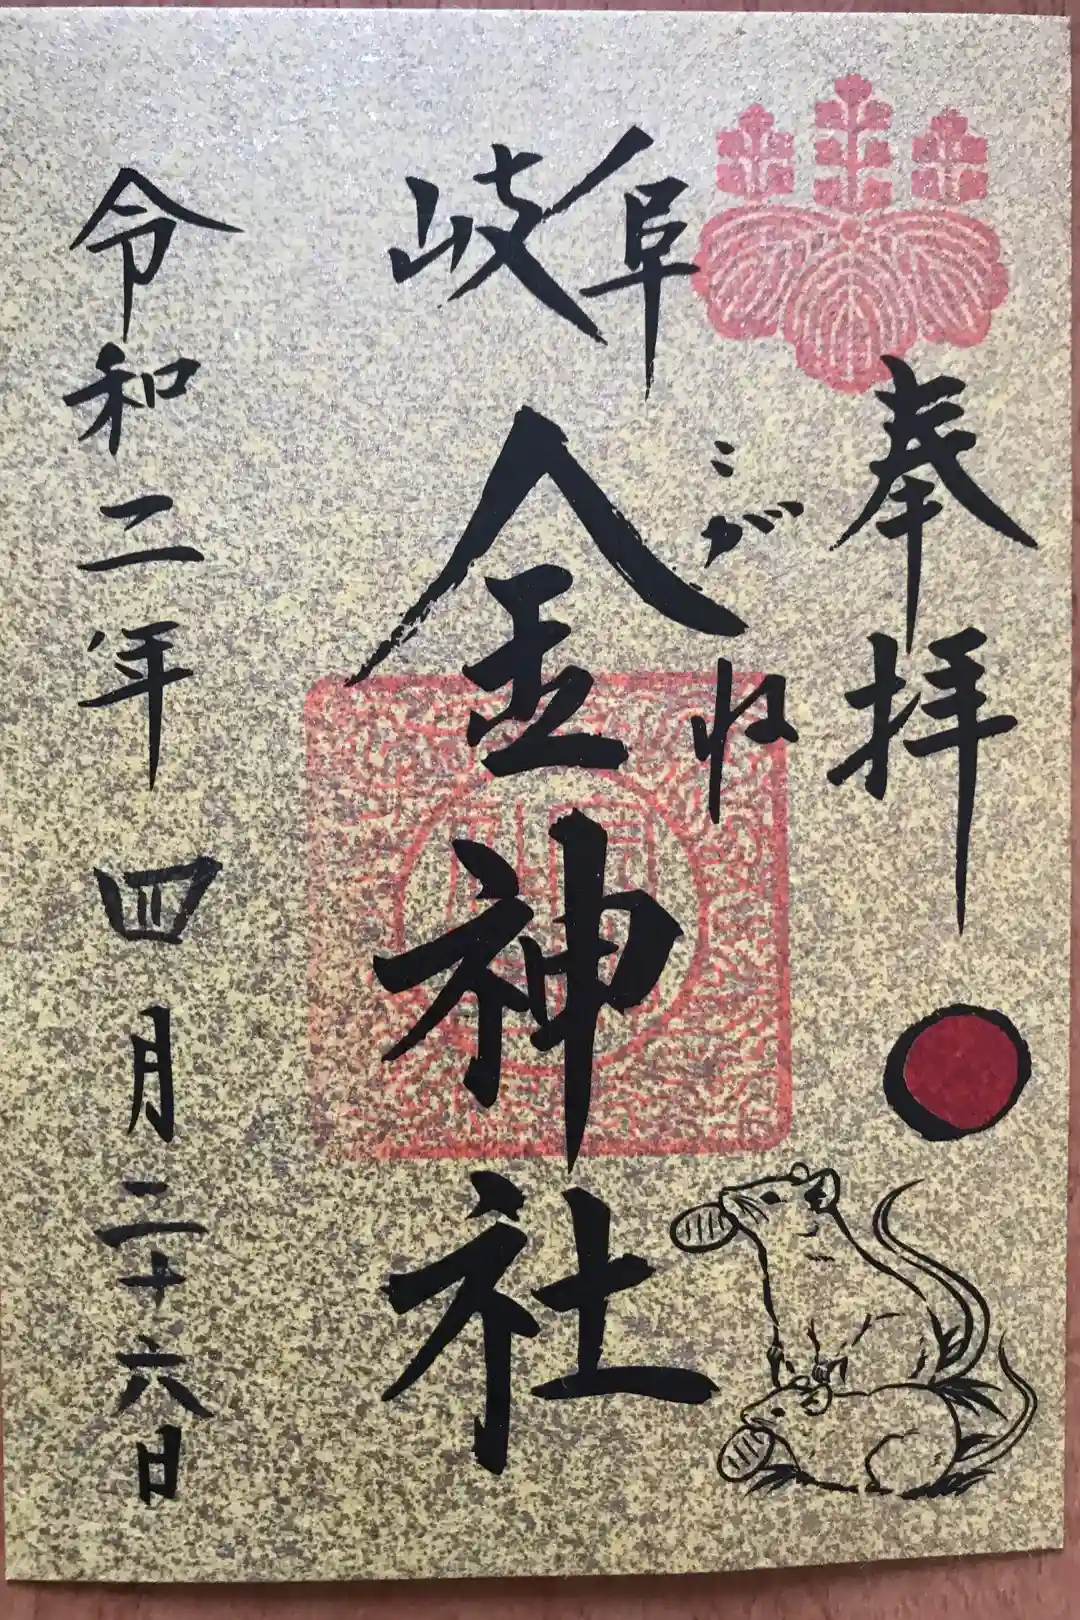 奉拝
岐阜
こがね
金神社
令和二年四月二十六日